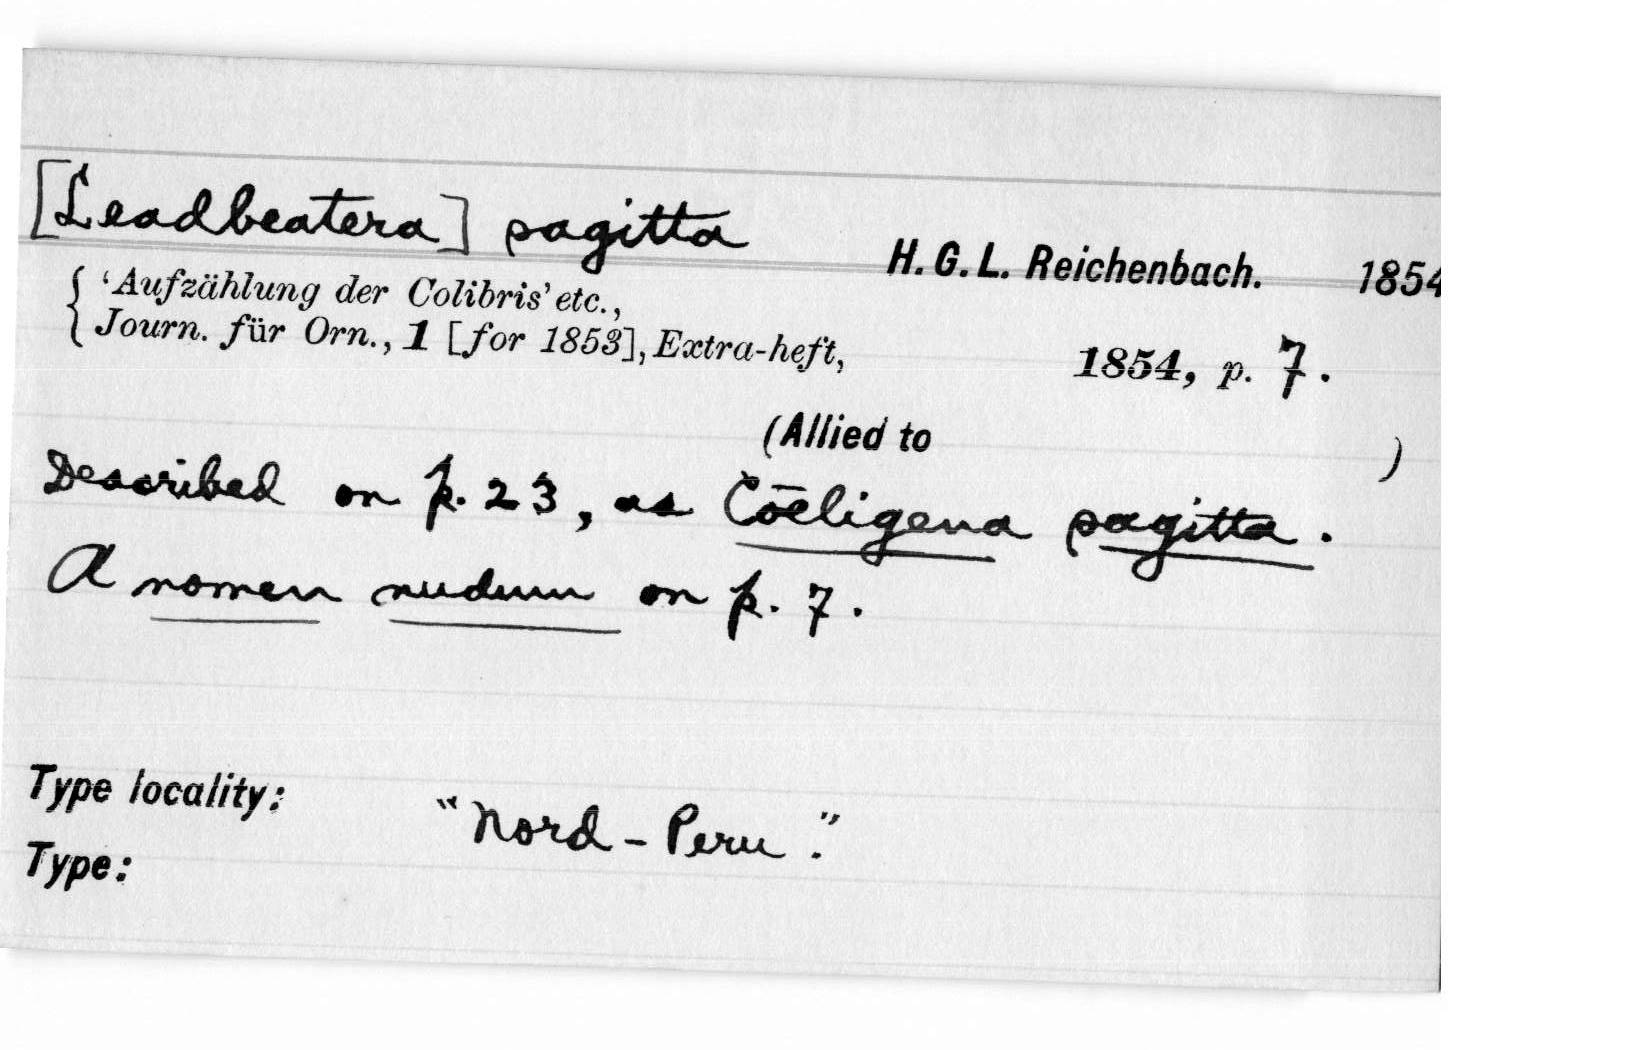 [Leadbeatera] sagitta H. G. L. Reichenbach. 1854
{ 'Aufzählung der Colibris' etc.,
Journ. für Orn., 1 [for 1853], Extra-heft, 1854, p. 7.
(Allied to )
Described on p. 23, as Cōeligena sagitta.
A nomen nudum on p. 7.
Type locality: "Nord-Peru."
Type: